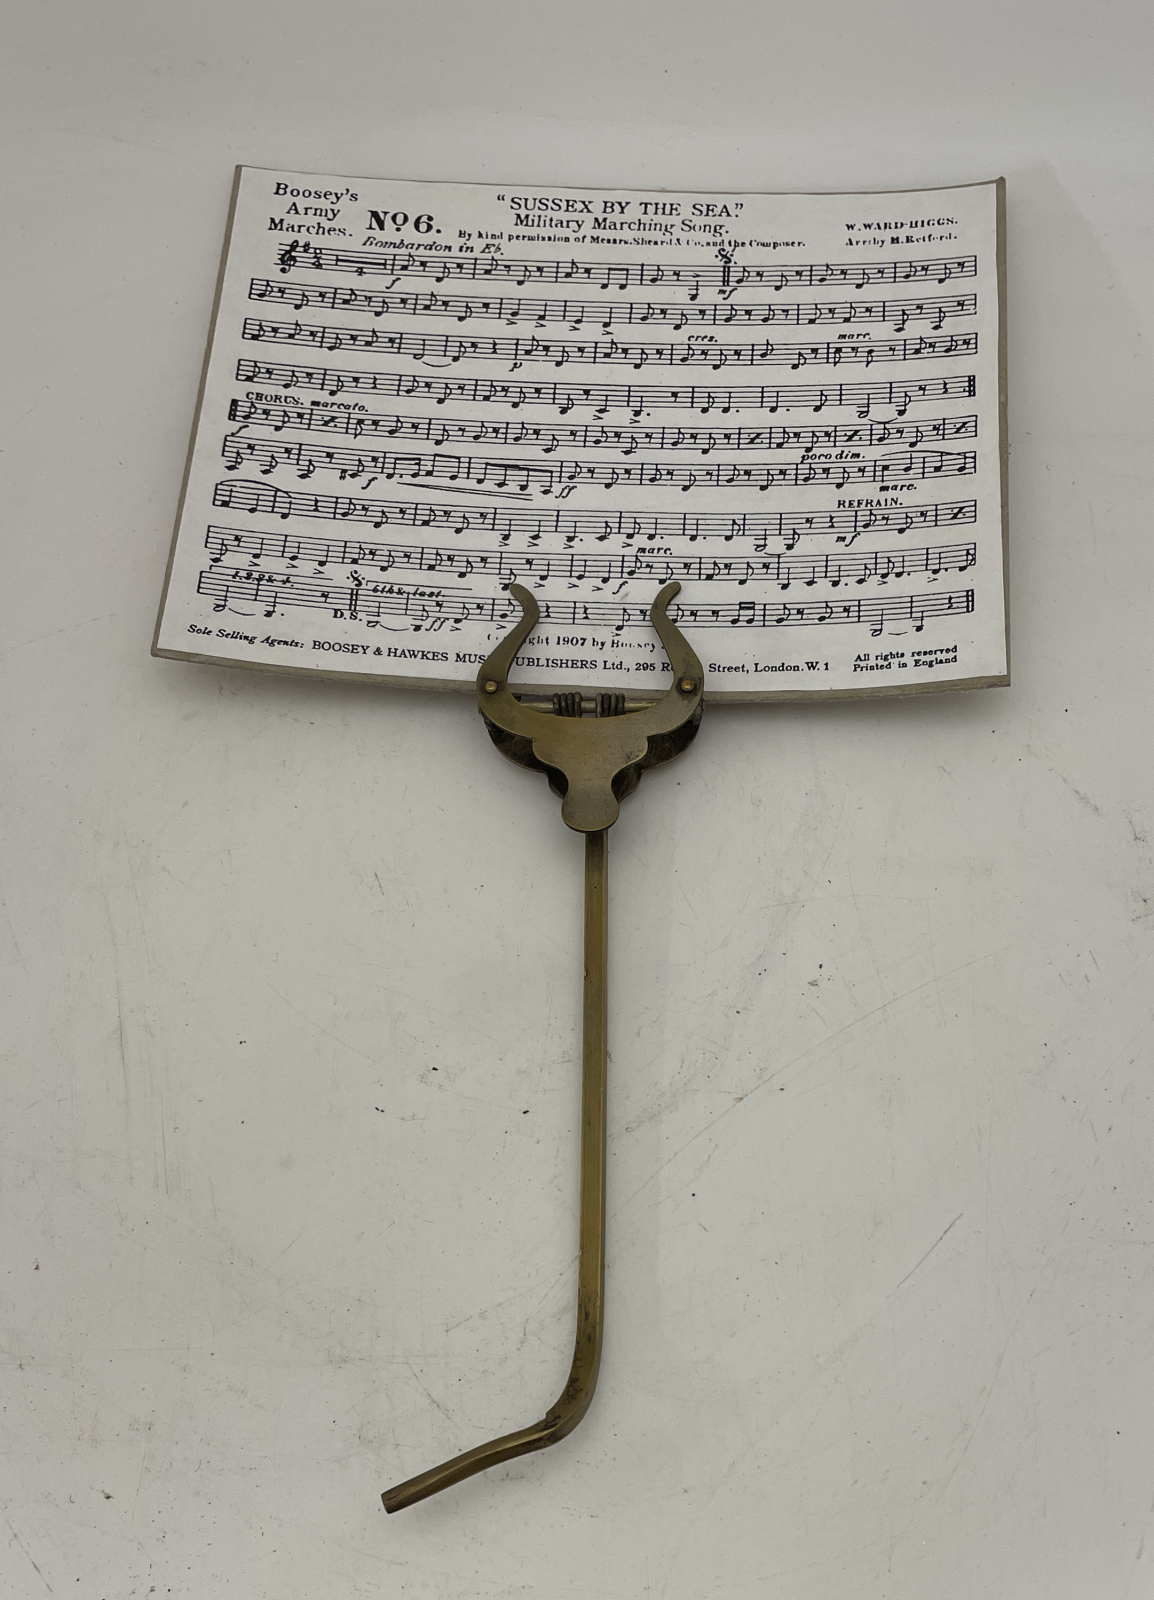 Boosey's
Army
Marches.
No 6.
"SUSSEX BY THE SEA."
Military Marching Song.
By kind permission of Messrs. Sheard & Co. and the Composer.
W. WARD-HIGGS.
Arr. by H. Retford.
Bombardon in E♭.
4
f
mf
cres.
marc.
p
CHORUS. marcato.
f
poco dim.
f
ff
marc.
REFRAIN.
mf
marc.
f
1. 2. 3 & 4.
D.S.
6th & last
ff
1907 by Boosey
Sole Selling Agents: BOOSEY & HAWKES PUBLISHERS Ltd., 295 Street, London. W. 1
All rights reserved
Printed in England